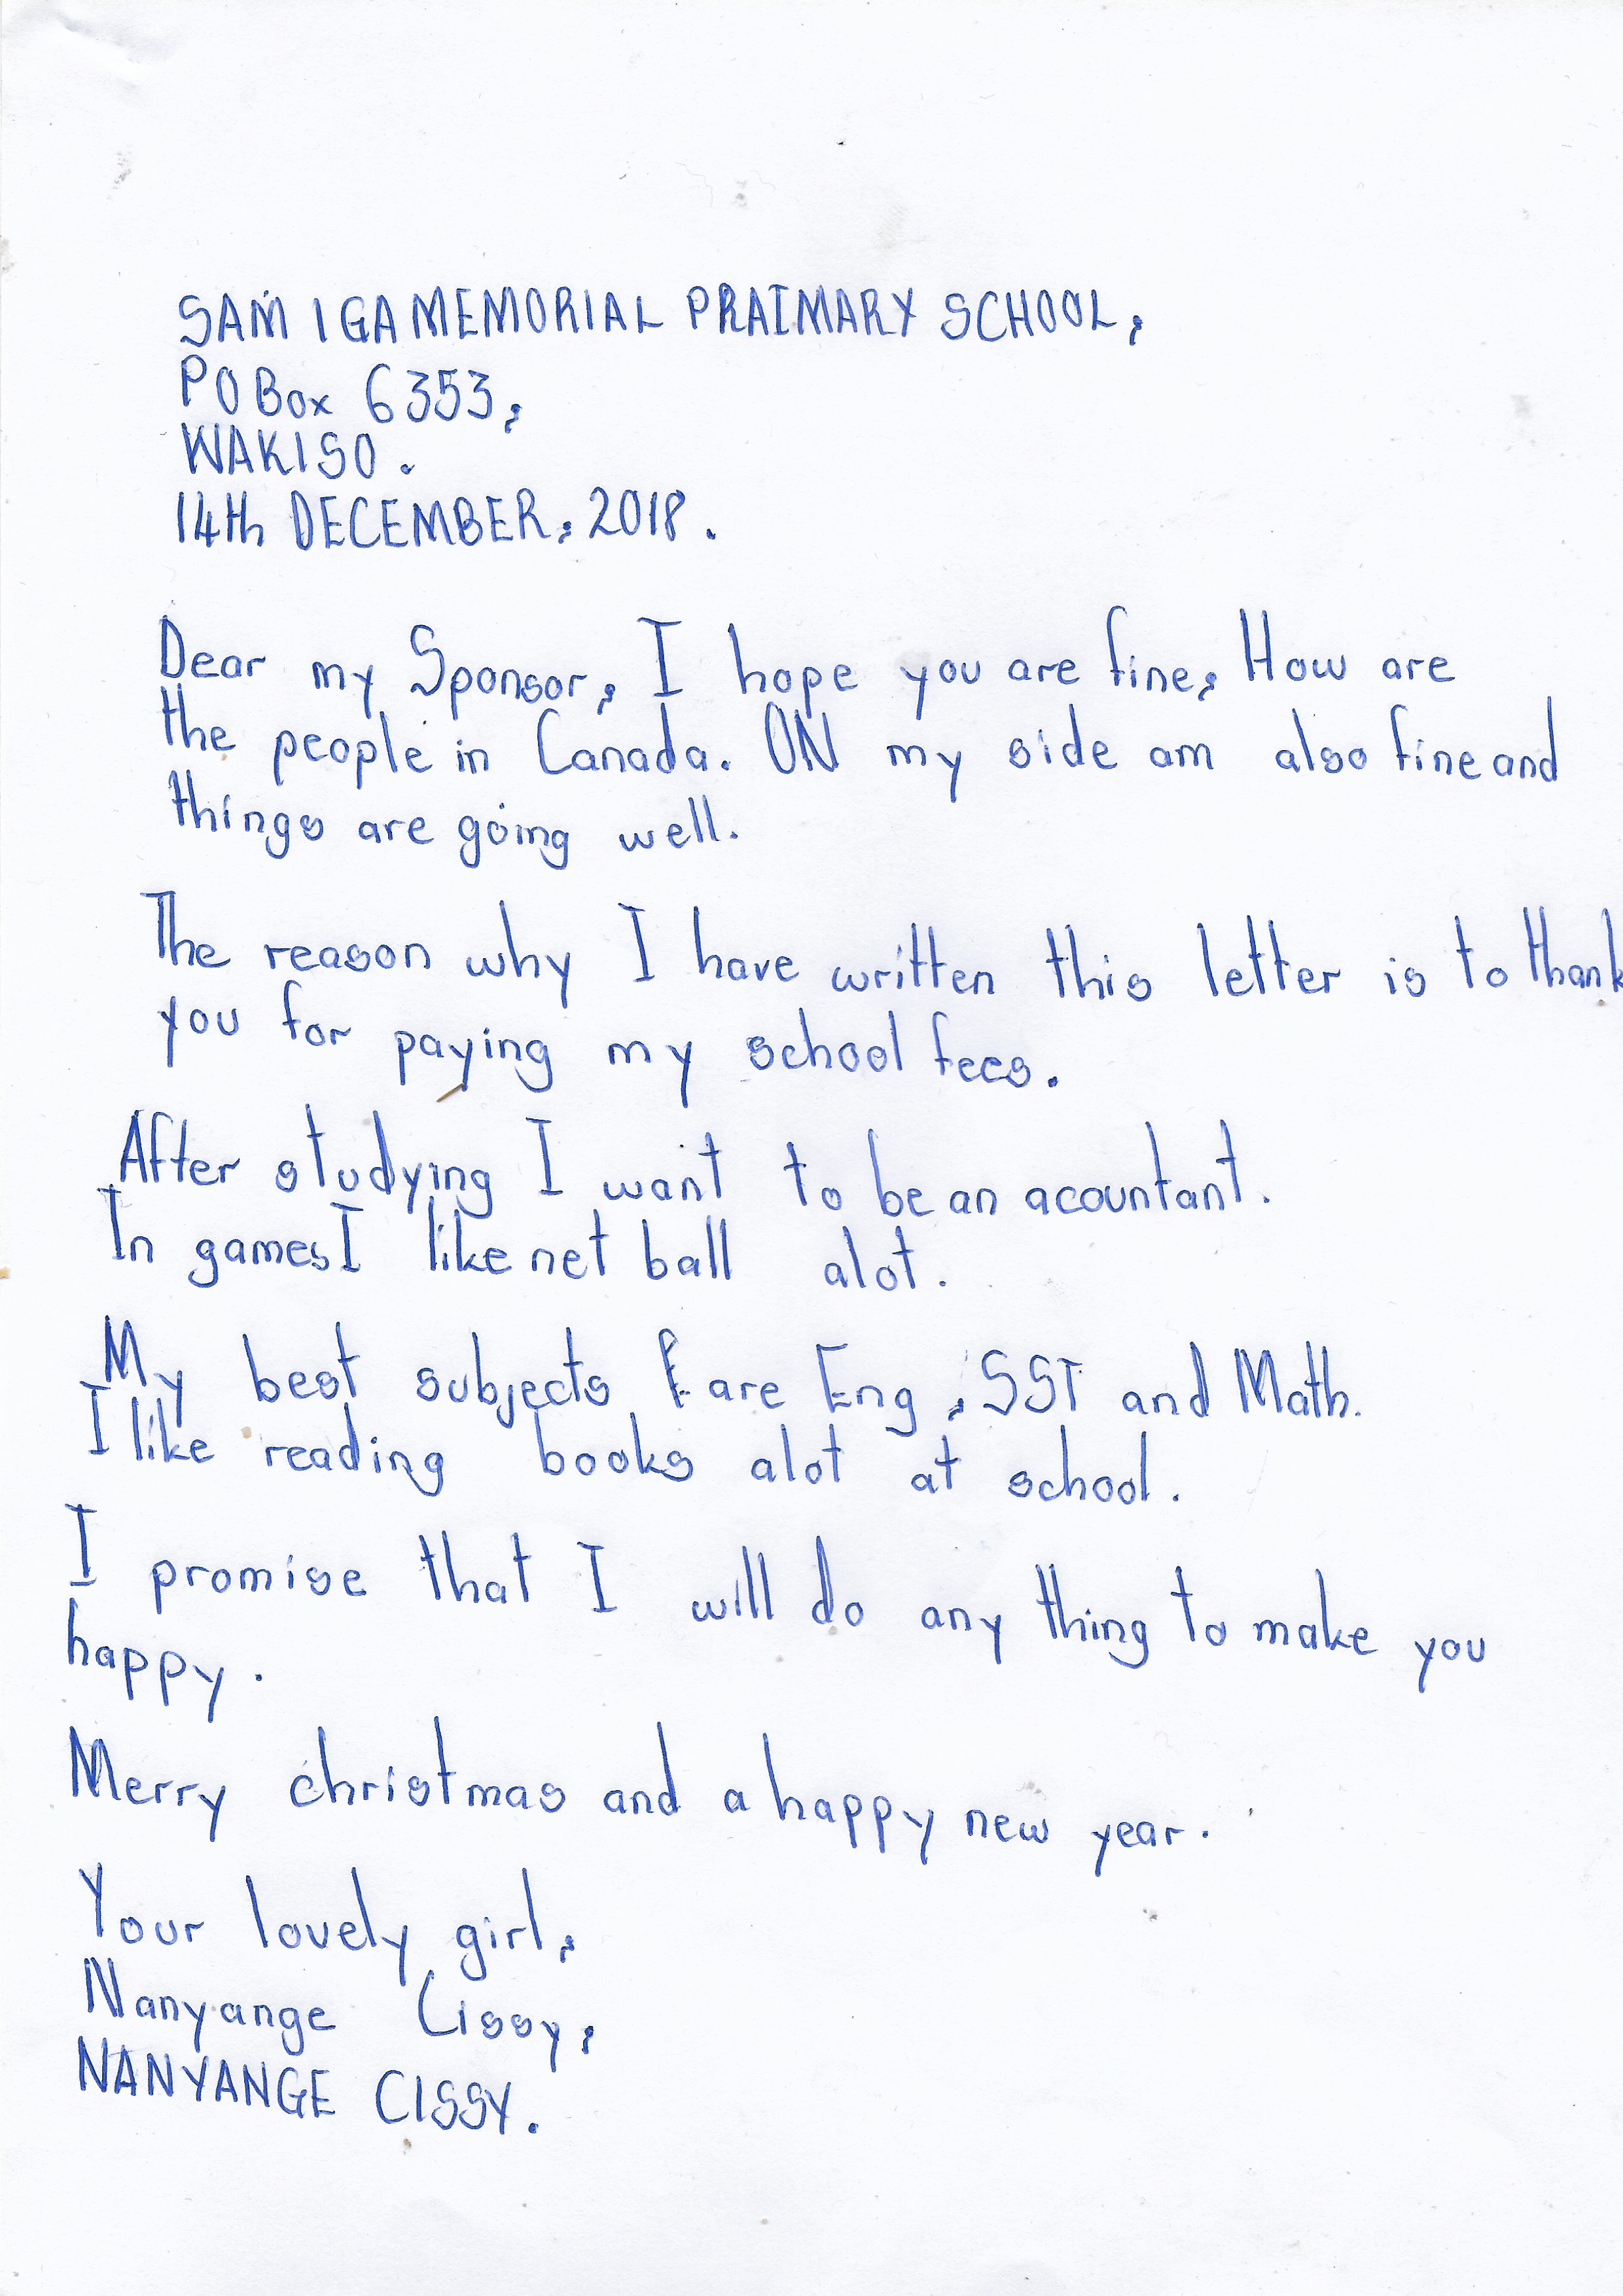 SAM IGA MEMORIAL PRAIMARY SCHOOL,
PO Box 6353,
WAKISO.
14th DECEMBER, 2018.
Dear my Sponsor, I hope you are fine, How are
the people in Canada. ON my side am also fine and
things are going well.
The reason why I have written this letter is to thank
you for paying my school fees.
After studying I want to be an acountant.
In games I like net ball alot.
My best subjects are Eng, SST and Math.
I like reading books alot at school.
I promise that I will do any thing to make you
happy.
Merry christmas and a happy new year.
Your lovely girl,
Nanyange Cissy,
NANYANGE CISSY.